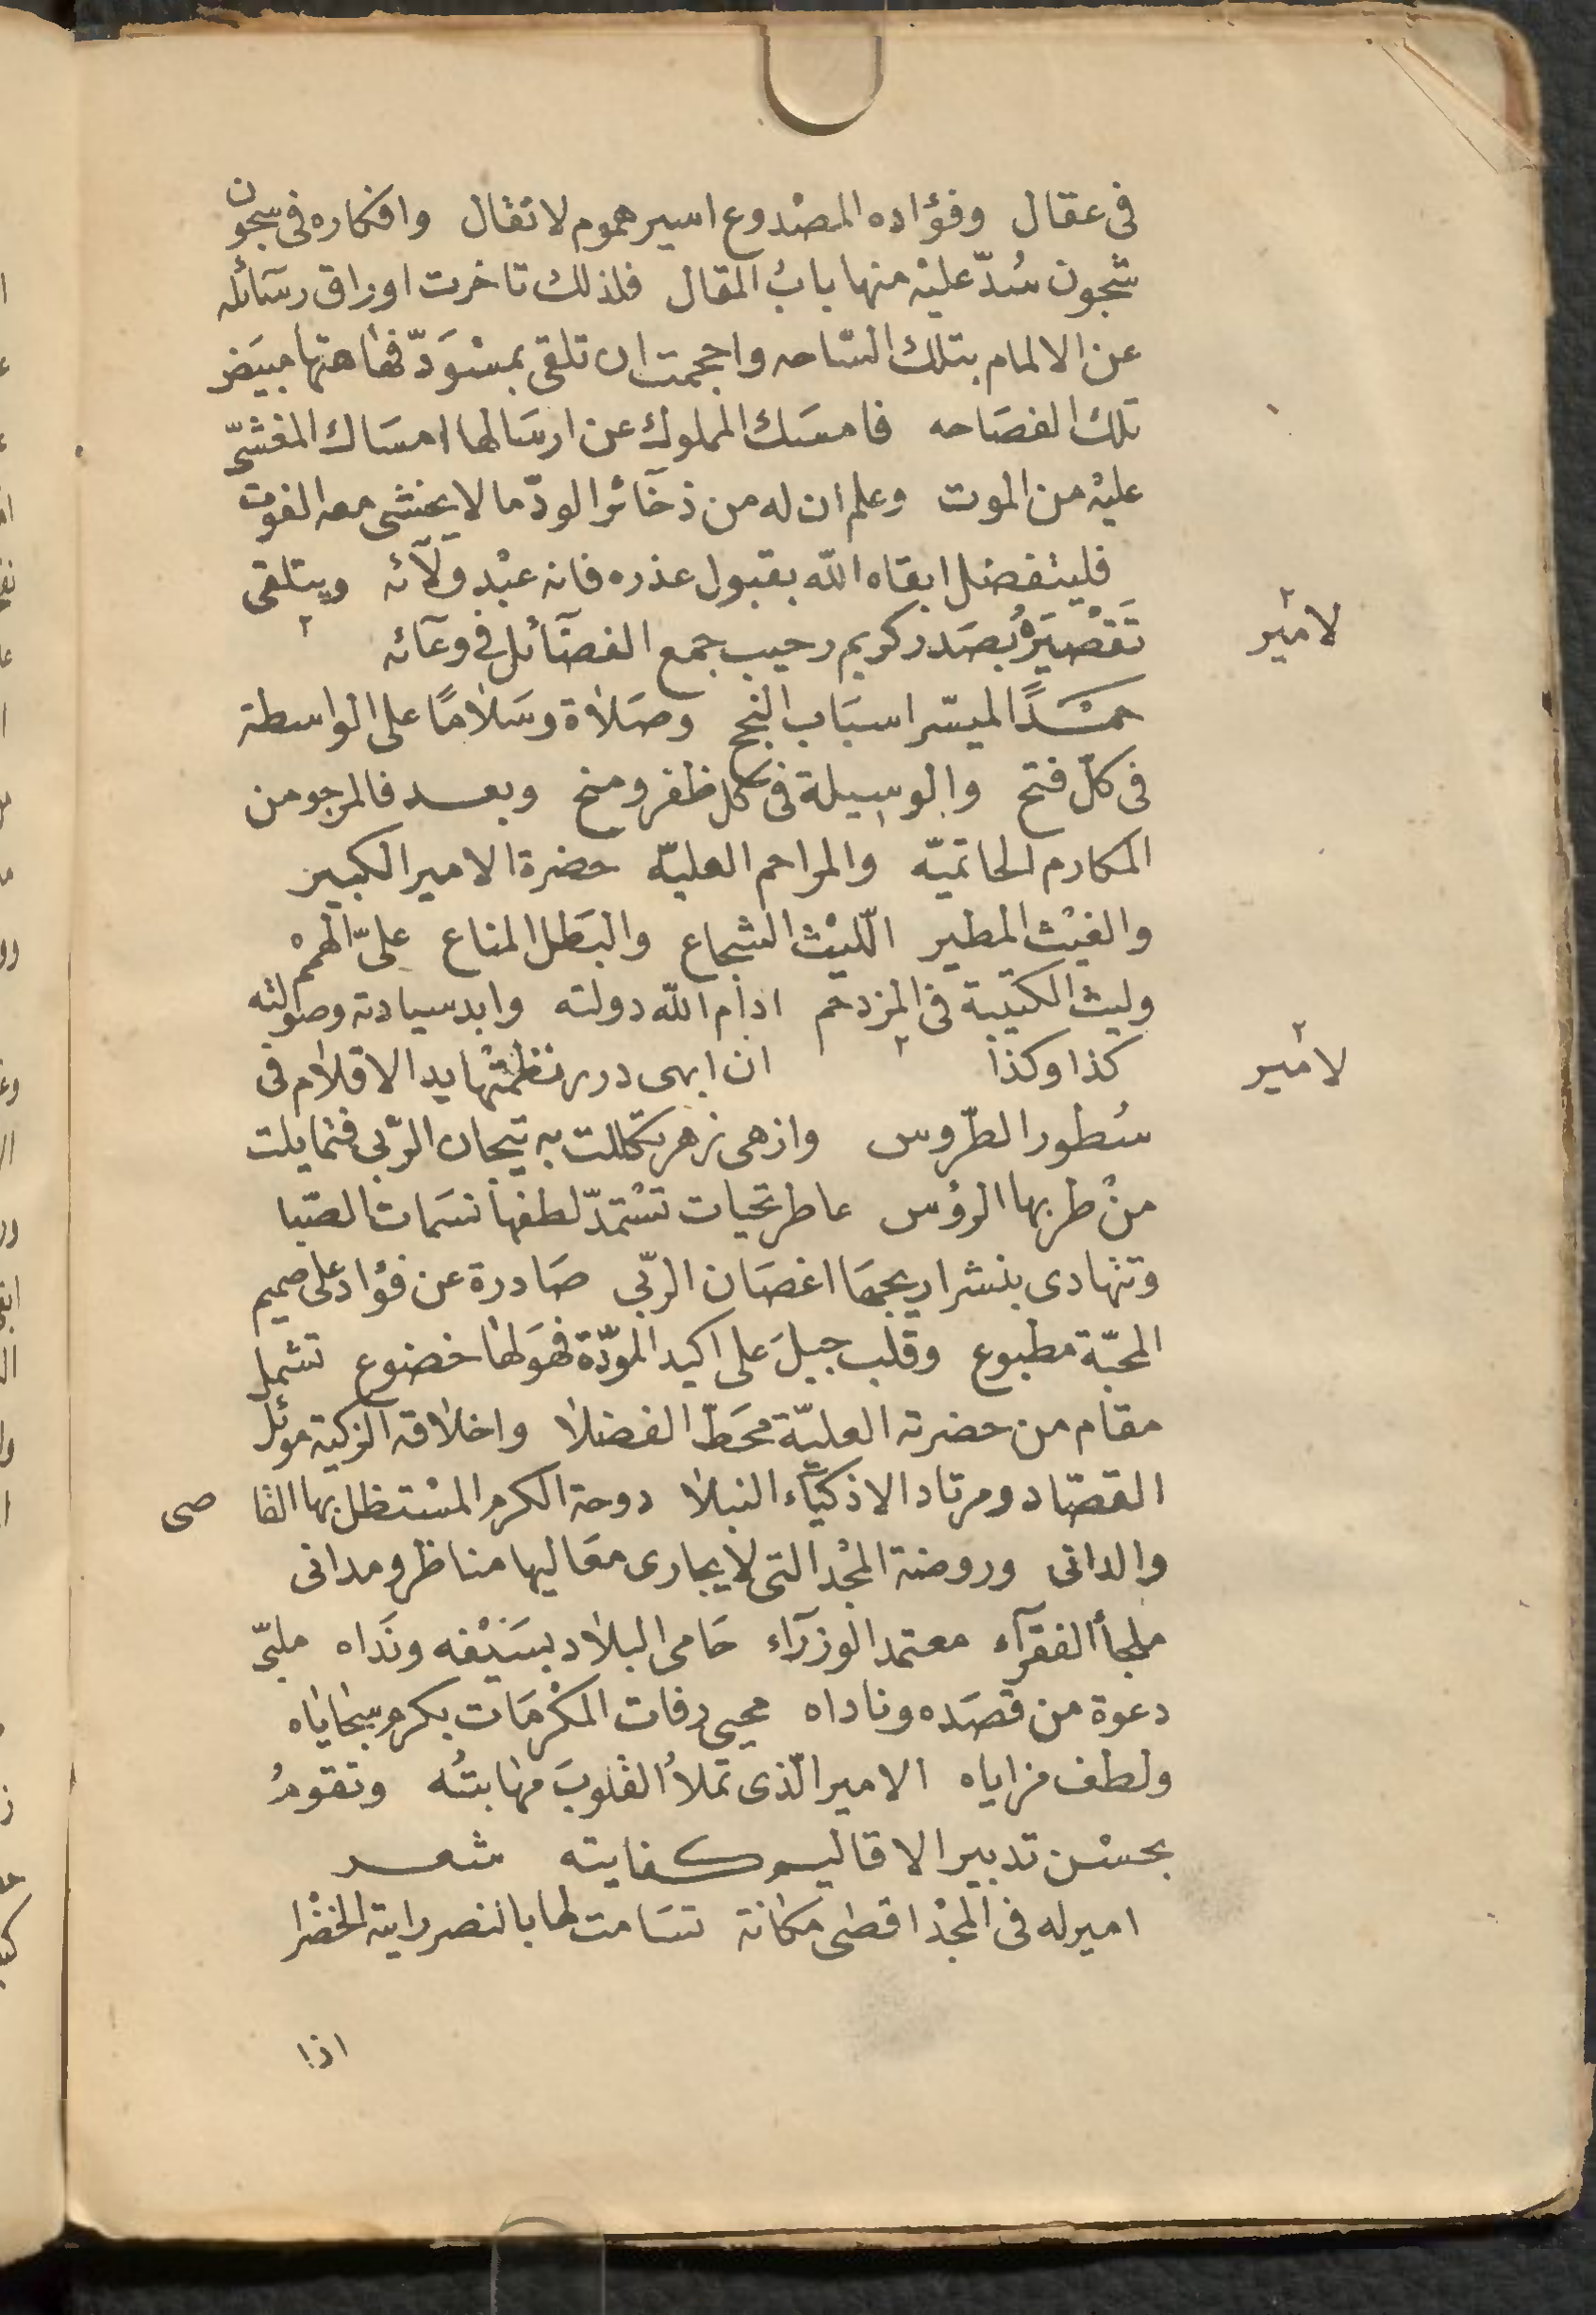 فى عقال وفؤاده المصدوع اسير هموم لا تقال وافكاره فى سجون
شجون سُدّ عليه منها بابُ المقال فلذلك تاخرت اوراق رسَائله
عن الالمام بتلك السّاحه واحجمت ان تلقى بمسْوَدّ فهَاهتها مبيَض
تلك الفصَاحه فامسَك المملوك عن ارسَالها امسَاك المغشىّ
عليْه من الموت وعلم ان له من ذخَائر الودّ ما لا يخشى معه الفوت
فليتفضل ابقاه الله بقبول عذره فانه عبْد ولآئه ويتلقى
لامير ٢
تَقْصْيَرهُ بصَدر كريم رحيب جمع الفضَائل فى وعَآئه ٢
حمْــدًا لميسّر اسبَاب النجح وصَلاة وسَلامًا على الواسطة
فى كلّ فتح والوسيلة فى كل ظفر ومنح وبعــد فالمرجو من
المكارم الحاتميّه والمراحم العليّه حضرة الامير الكبير
والغيْث المطير الّليْث الشجاع والبَطل المناع علىّ الهممْ
وليث الكتيبة فى المزدحم ادام الله دولته وابد سيادته وصَولته
لامير ٢
كذا وكذا ٢ ان ابهى درر نظمتْها يد الاقلام فى
سُطور الطّروس وازهى زهر تكللت به تيجان الرّبى فتمايلت
منْ طربها الرؤس عاطر تحيات تسْتمدّ لطفها نسَمات الصّبا
وتتهادى بنشر اريجهَا اغصَان الربّى صَادرة عن فؤاد على صميم
المحبّة مطبوع وقلب جبلَ على اكيد المَودّة فهوَ لها خضوع تشمل
مقام من حضرته العليّة محَطّ الفضلا واخلاقه الزكية موئل
القصّاد ومرتاد الاذكيَآء النبلا دوحة الكرم المسْتظل بها القا صى
والدانى وروضة المجْد التى لا يجارى معَاليها مناظر ومدانى
ملجأ الفقرآء معتمد الوزرآء حَامى البلاد بسَيْفه ونَداه ملبّى
دعوة من قصَده وناداه محيى رفات المكْرمَات بكرم سجاياه
ولطف مزاياه الامير الّذى تملأُ القلوبَ مهَابتُه وتقومُ
بحسْن تدبير الاقاليم كفايته شعــر
امير له فى المجْد اقصَى مكانة تسَامت لها بالنصر راية الخضْرا
اذا